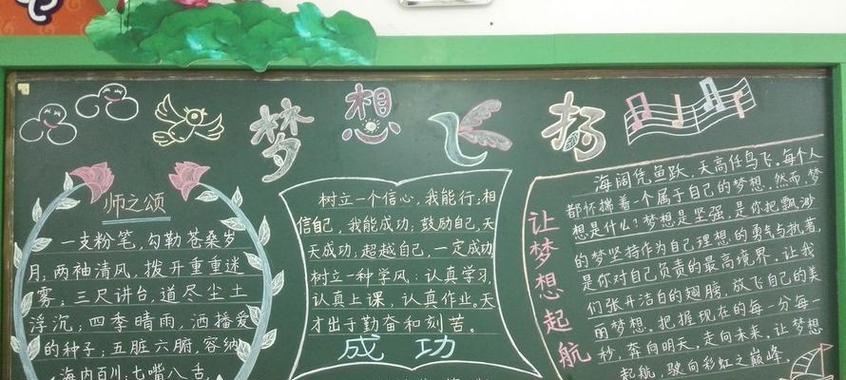 梦想 扬
师之颂
一支粉笔,勾勒苍桑岁
月;两袖清风,拨开重重迷
雾;三尺讲台,道尽尘土
浮沉;四季晴雨,洒播爱
的种子;五脏六腑,容纳
海内百川;七嘴八舌,
树立一个信心,我能行;相
信自己,我能成功;鼓励自己,天
天成功;超越自己,一定成功
树立一种学风:认真学习,
认真上课,认真作业。天
才出于勤奋和刻苦。
成功
让梦想起航
海阔凭鱼跃,天高任鸟飞。每个人
都怀揣着一个属于自己的梦想,然而,梦
想是什么?梦想是坚强,是你把飘渺
的梦坚持作为自己理想的勇气与执着,
是你对自己负责的最高境界。让我
们张开洁白的翅膀,放飞自己的美
丽梦想。把握现在的每一分每一
秒,奔向明天,走向未来。让梦想
起航,驶向彩虹之巅峰。